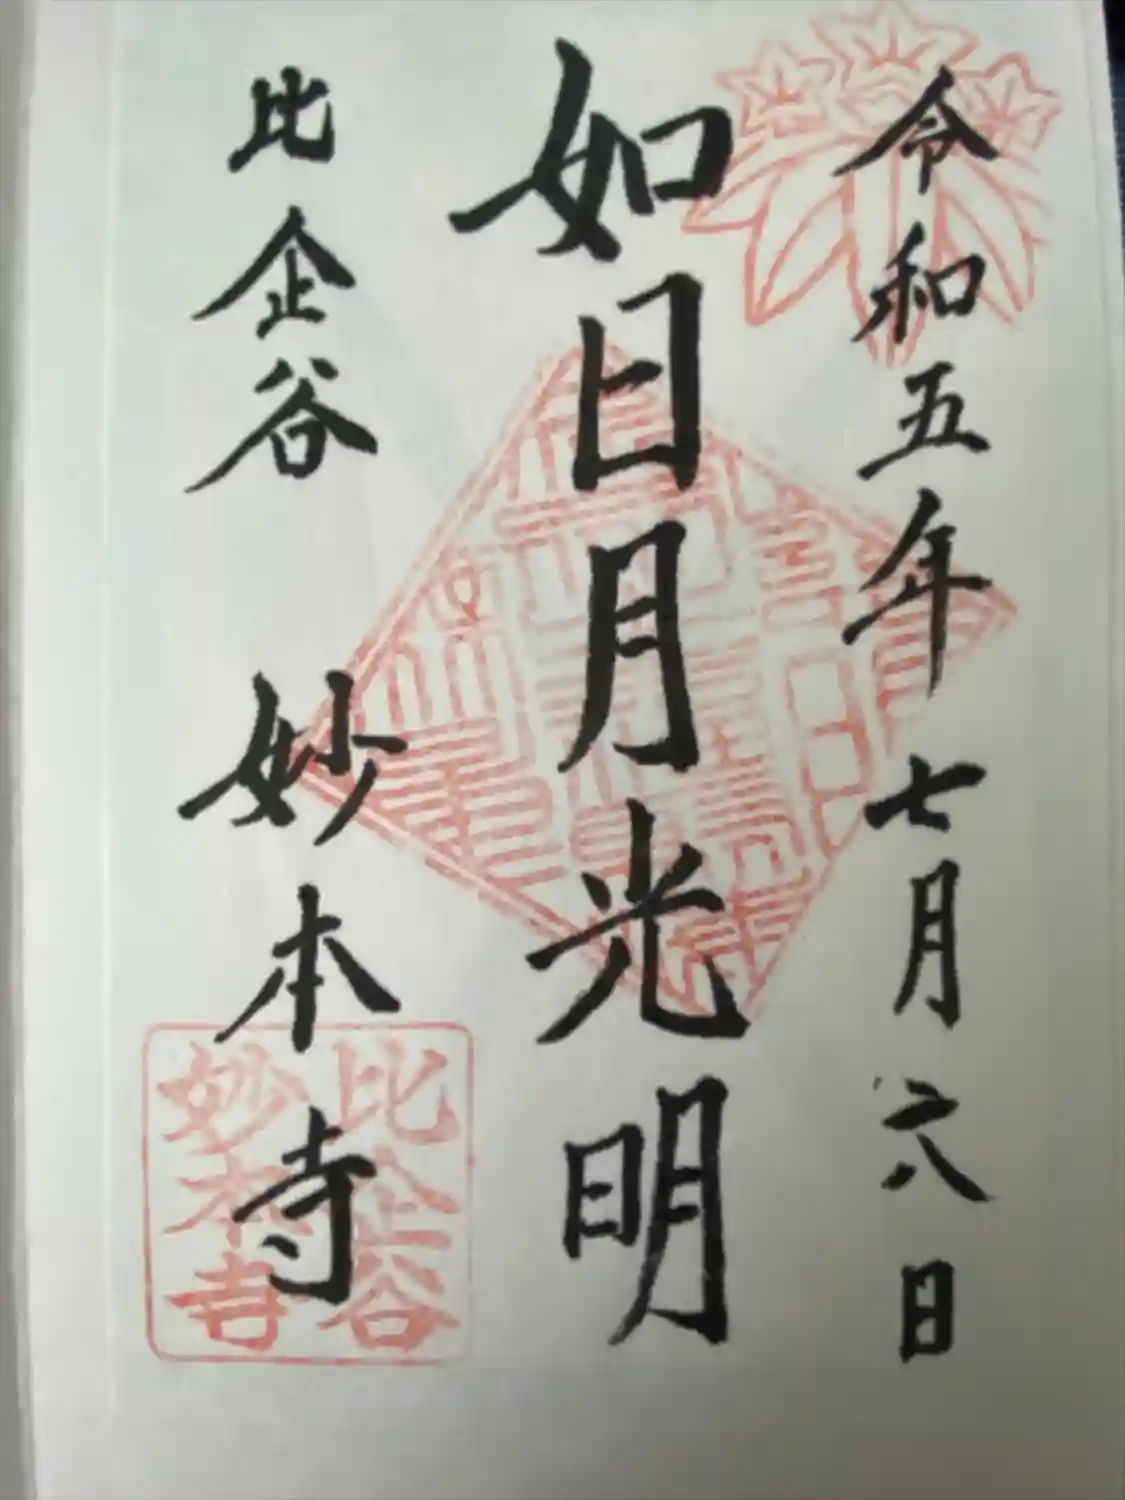 令和五年七月六日
如日月光明
比企谷 妙本寺
比企谷
妙本寺